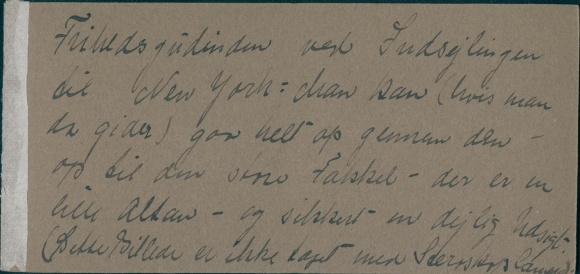 Frihedsgudinden ved Indsejlingen
til New York: Man kan (hvis man
da gider) gaa helt op gennem den -
op til den store Fakkel - der er en
lille Altan - og sikkert en dejlig Udsigt -
(Dette Billede er ikke taget med